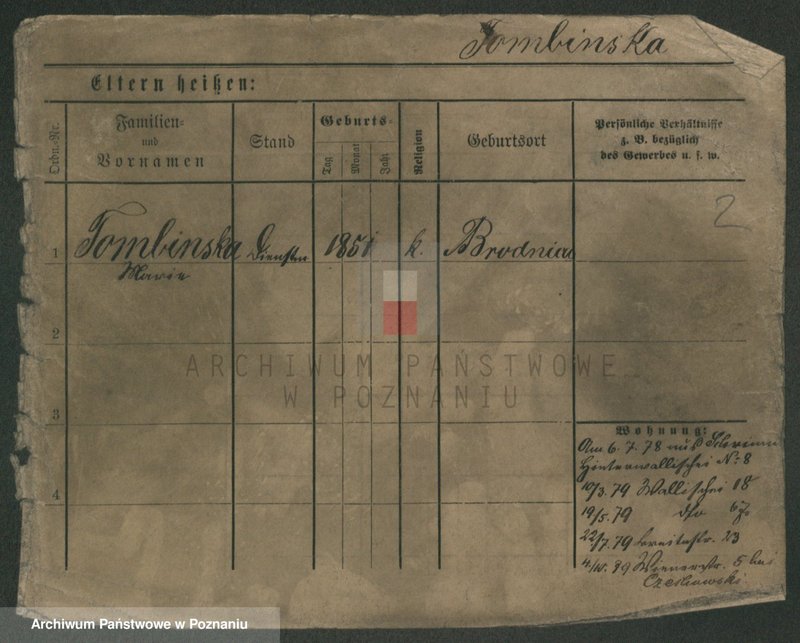 Tombinska
Eltern heißen:
Ordn.-Nr.
Familien-
und
Vornamen
Stand
Geburts-
Tag
Monat
Jahr
Religion
Geburtsort
Persönliche Verhältnisse
z. B. bezüglich
des Gewerbes u. s. w.
2
1
Tombinska
Marie
1851
k.
Brodnia
2
3
4
ARCHIWUM PAŃSTWOWE
W POZNANIU
Wohnung:
Am 6. 7. 78 aus Schrimm
Hinterwallischei No 8
10/3. 79 Wallischei 18
19/5. 79 dto
22/7. 79 Breitestr. 23
Wienerstr. 5 bei
Archiwum Państwowe w Poznaniu